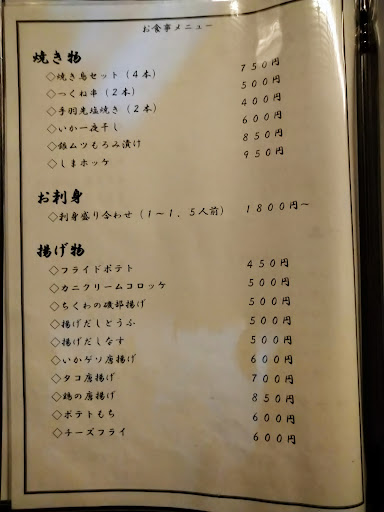 お食事メニュー
焼き物
◇焼き鳥セット（４本） ７５０円
◇つくね串（２本） ５００円
◇手羽先塩焼き（２本） ４００円
◇いか一夜干し ６００円
◇銀ムツもろみ漬け ８５０円
◇しまホッケ ９５０円
お刺身
◇刺身盛り合わせ（１～１．５人前） １８００円～
揚げ物
◇フライドポテト ４５０円
◇カニクリームコロッケ ５００円
◇ちくわの磯部揚げ ５００円
◇揚げだしとうふ ５００円
◇揚げだしなす ５００円
◇いかゲソ唐揚げ ６００円
◇タコ唐揚げ ７００円
◇鶏の唐揚げ ８５０円
◇ポテトもち ６００円
◇チーズフライ ６００円